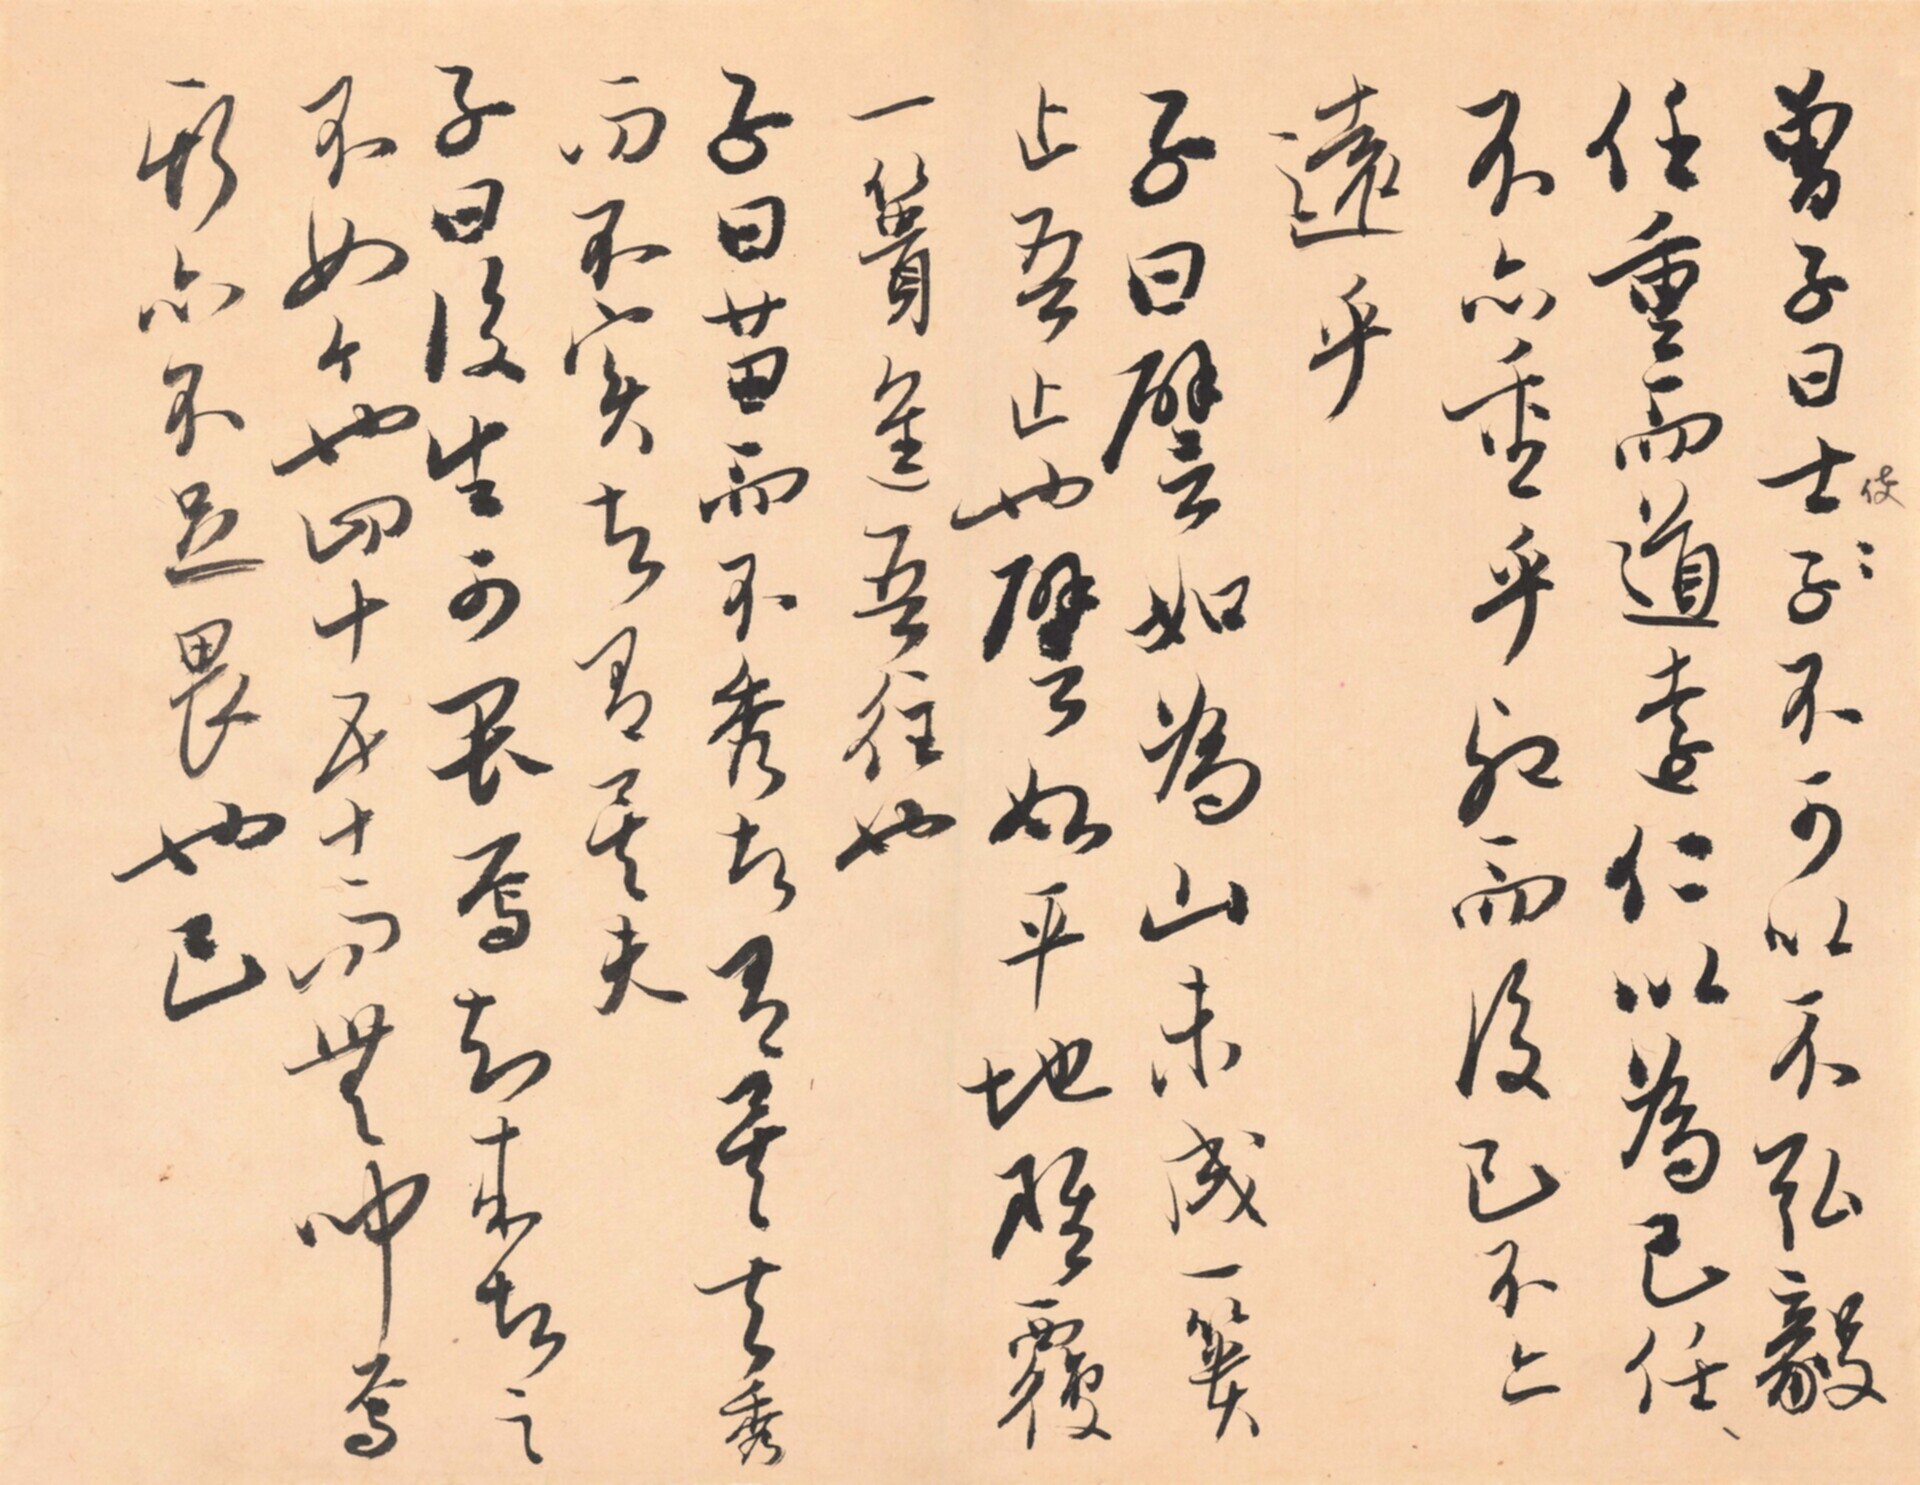 曾子曰士子不可以不弘毅
任重而道遠仁以為己任、
不亦重乎死而後已不亦
遠乎
子曰譬如為山未成一簣
止吾止也譬如平地雖覆
一簣進吾往也
子曰苗而不秀者有矣夫秀
而不實者有矣夫
子曰後生可畏焉知來者之
不如今也四十五十而無聞焉
斯亦不足畏也已